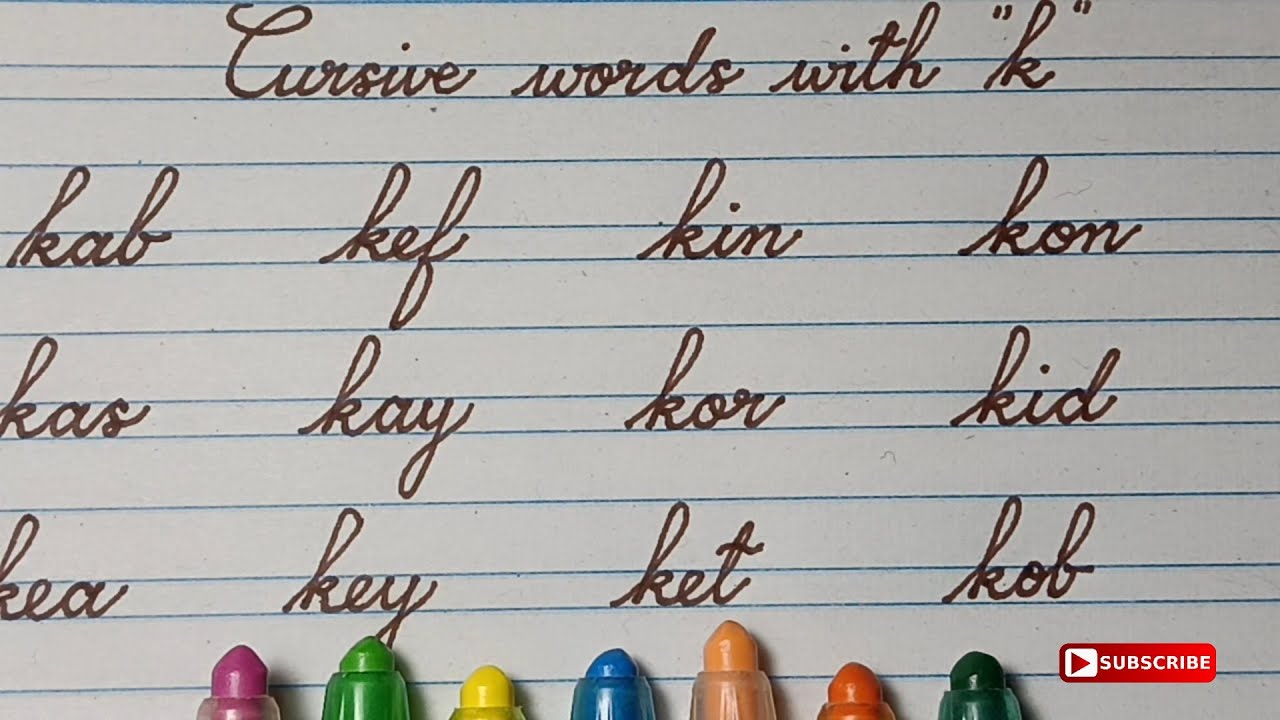 Cursive words with "k"
kab kef kin kon
kas kay kor kid
kea key ket kob
SUBSCRIBE